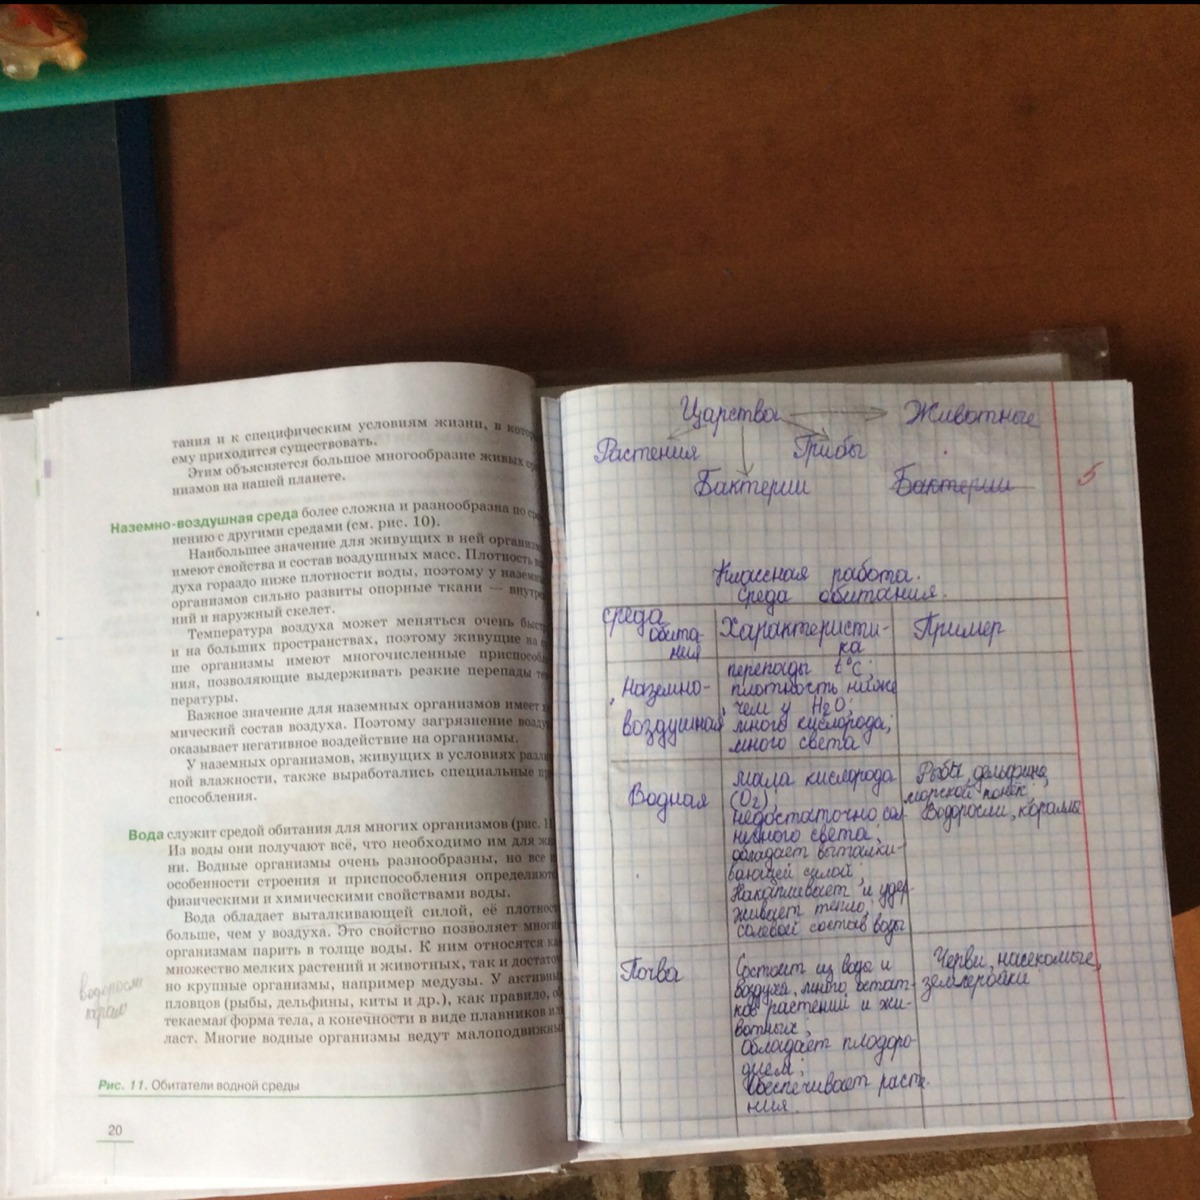 тания и к специфическим условиям жизни, в
ему приходится существовать.
Этим объясняется большое многообразие живых
низмов на нашей планете.
Наземно-воздушная среда более сложна и разнообразна по
нению с другими средами (см. рис. 10).
Наибольшее значение для живущих в ней
имеют свойства и состав воздушных масс. Плотность
духа гораздо ниже плотности воды, поэтому у
организмов сильно развиты опорные ткани —
ний и наружный скелет.
Температура воздуха может меняться очень
и на больших пространствах, поэтому живущие на
ше организмы имеют многочисленные
ния, позволяющие выдерживать резкие перепады
пературы.
Важное значение для наземных организмов имеет
мический состав воздуха. Поэтому загрязнение
оказывает негативное воздействие на организмы.
У наземных организмов, живущих в условиях
ной влажности, также выработались специальные
способления.
Вода служит средой обитания для многих организмов (рис. 11
Из воды они получают всё, что необходимо им для
ни. Водные организмы очень разнообразны, но все
особенности строения и приспособления
физическими и химическими свойствами воды.
Вода обладает выталкивающей силой, её
больше, чем у воздуха. Это свойство позволяет
организмам парить в толще воды. К ним относятся
множество мелких растений и животных, так и
но крупные организмы, например медузы. У
пловцов (рыбы, дельфины, киты и др.), как правило,
текаемая форма тела, а конечности в виде плавников
ласт. Многие водные организмы ведут
водоросли
Рис. 11. Обитатели водной среды
20
Царства Животные
Растения Грибы
Бактерии Бактерии
5
Классная работа.
Среда обитания.
среда Характеристи- Пример
обита- ка
ния
Наземно-
воздушная
перепады t°C;
плотность ниже
чем у H2O;
много кислорода;
много света
Водная
мала кислорода
(O2),
недостаточно сол
нечного света;
обладает выталки-
вающей силой,
Накапливает и удер-
живает тепло;
солевой состав воды
Рыбы, дельфина,
морской конёк;
Водоросли, кораллы
Почва
Состоит из воды и
воздуха, много остат-
ков растений и жи-
вотных;
Обладает плодоро-
дием;
Обеспечивает расте-
ния.
Черви, насекомые,
землеройки